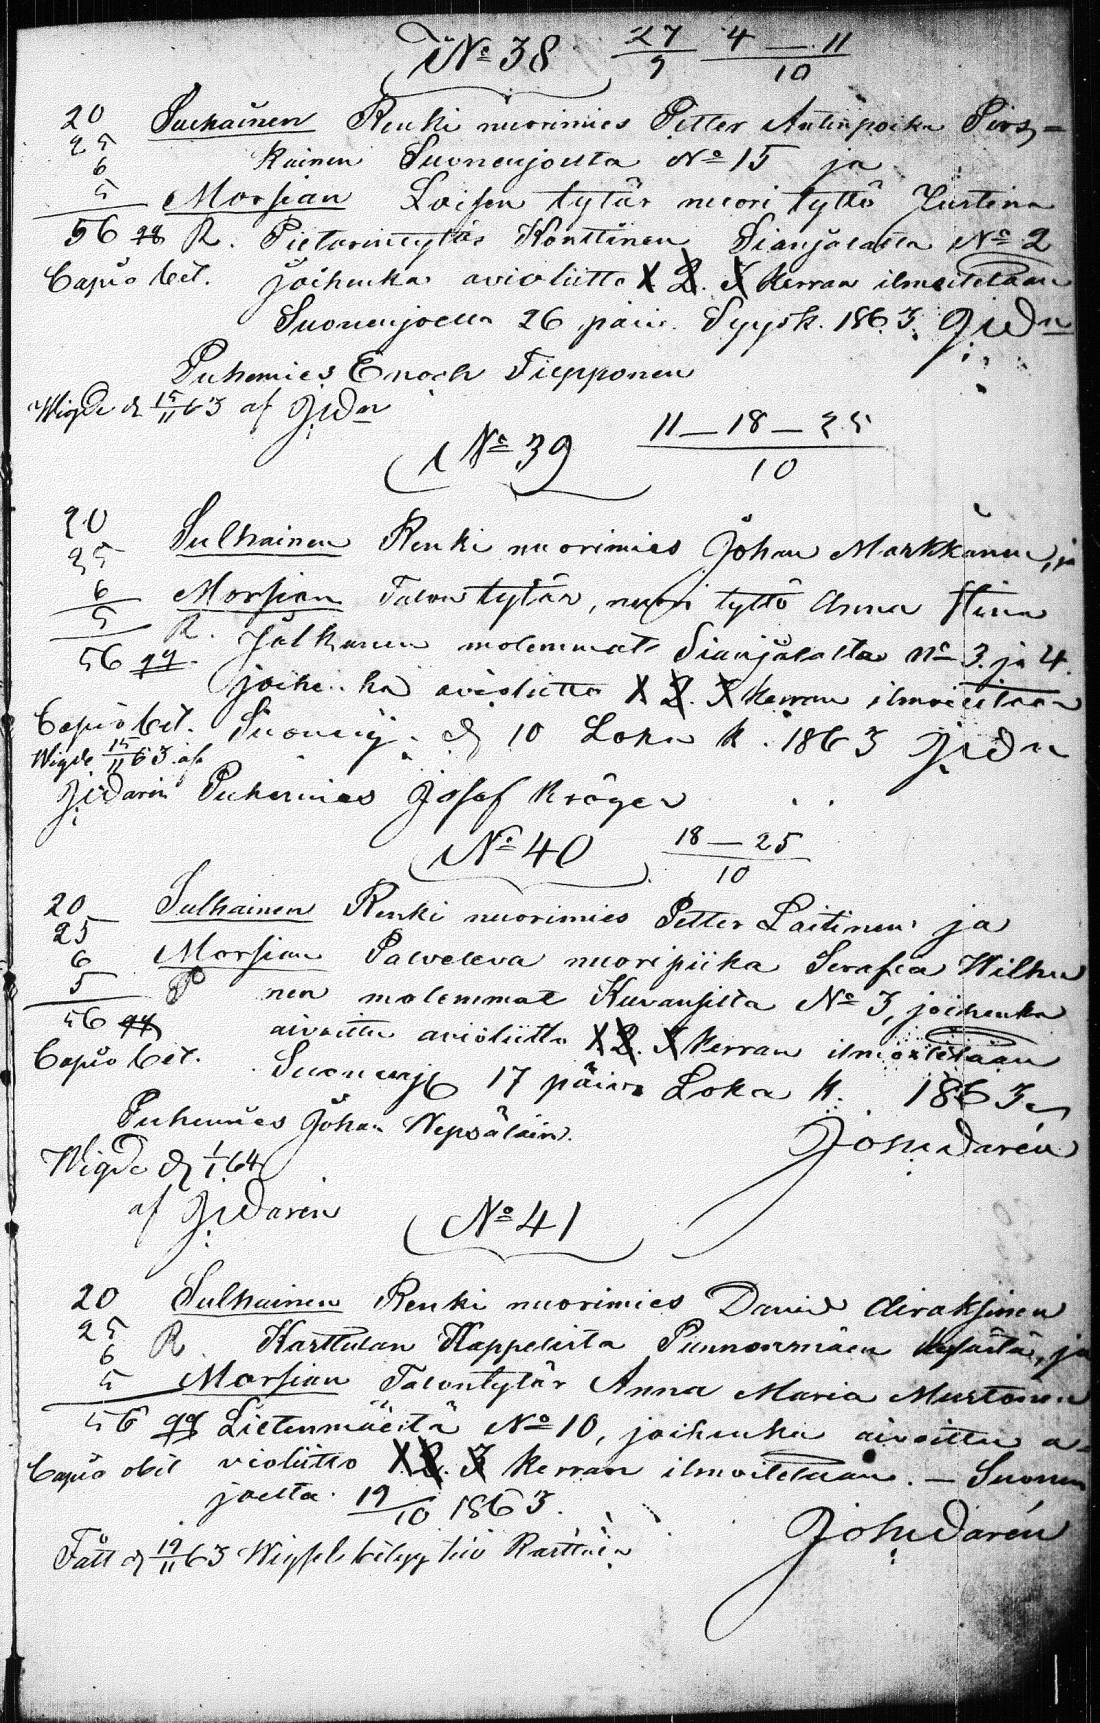 № 38 27/9 4 — 11/10
20 Sulhainen Renki nuorimies Petter Antinpoika Pirs=
25 kainen Suonenjoelta № 15 ja
6
5 Morsian Loisen tytär nuori tyttö Justina
56 R. Pietarintytär Konttinen Sianjalasta № 2
Capio bet. joihenka avioliitto X 2. 3 kerran ilmoitetaan
Suonenjoella 26 päiv. Syysk. 1863.
Puhemies Enoch Tiepponen
Wigde d 15/11 63 af
№ 39 11 — 18 — 25/10
20
25 Sulhainen Renki nuorimies Johan Markkanen, ja
6 Morsian Talon tytär, nuori tyttö Anna Stina
5 R. Jalkanen molemmat Sianjalalta No 3. ja 4.
56 joihenka avioliitto X 2. 3 kerran ilmoitetaan
Capio bet. Suonenj. d 10 Loka k. 1863
Wigde 15/11 63. af
J. W Darén Puhemies Josef Kröger
№ 40 18 — 25/10
20 Sulhainen Renki nuorimies Petter Laitinen ja
25
6 Morsian Palveleva nuori piika Serafia Wilhu
5 nen molemmat Kuvansilta № 3, joihenka
56 aivoittu avioliitto X 2. 3 kerran ilmoitetaan
Capio bet. Suonenj 17 päiv. Loka k. 1863.
Puhemies Johan Nepsäläin. Joh W Darén
Wigde d 1/1 64
af J. W Darén
№ 41
20 Sulhainen Renki nuorimies David Airaksinen
25
6 R. Karttulan Kappelista Punnonmäen kylästä, ja
5 Morsian Talontytär Anna Maria Mustonen
56 Lietenmäeltä № 10, joihenka aivoittu a=
Capio obet violiitto X 2. 3 kerran ilmoitetaan. — Suonen
joelta. 19/10 1863.
Fått d 19/11 63 Wigselbetyg till Karttula
Joh W Darén